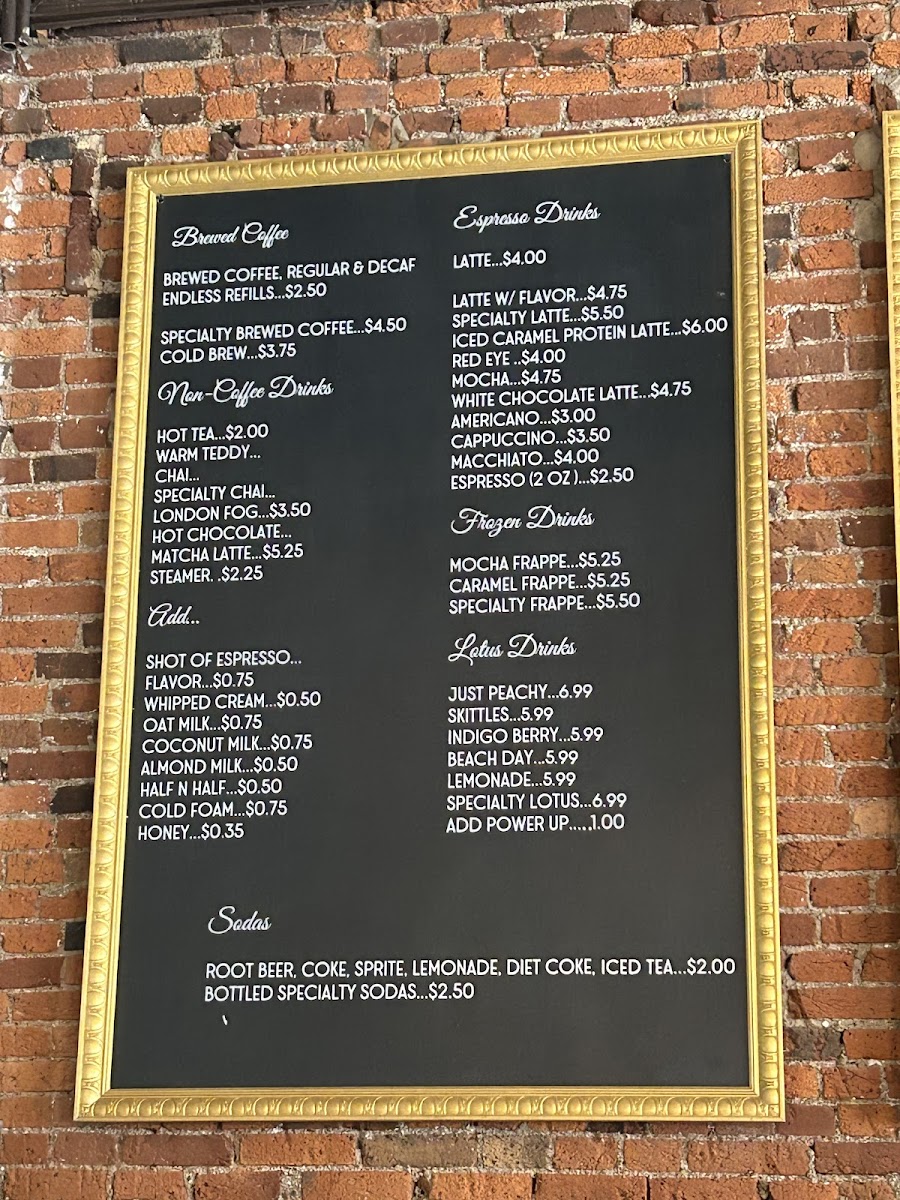 Brewed Coffee
BREWED COFFEE, REGULAR & DECAF
ENDLESS REFILLS...$2.50
SPECIALTY BREWED COFFEE...$4.50
COLD BREW...$3.75
Non-Coffee Drinks
HOT TEA...$2.00
WARM TEDDY...
CHAI...
SPECIALTY CHAI...
LONDON FOG...$3.50
HOT CHOCOLATE...
MATCHA LATTE...$5.25
STEAMER. .$2.25
Add...
SHOT OF ESPRESSO...
FLAVOR...$0.75
WHIPPED CREAM...$0.50
OAT MILK...$0.75
COCONUT MILK...$0.75
ALMOND MILK...$0.50
HALF N HALF...$0.50
COLD FOAM...$0.75
HONEY...$0.35
Espresso Drinks
LATTE...$4.00
LATTE W/ FLAVOR...$4.75
SPECIALTY LATTE...$5.50
ICED CARAMEL PROTEIN LATTE...$6.00
RED EYE ..$4.00
MOCHA...$4.75
WHITE CHOCOLATE LATTE...$4.75
AMERICANO...$3.00
CAPPUCCINO...$3.50
MACCHIATO...$4.00
ESPRESSO (2 OZ )...$2.50
Frozen Drinks
MOCHA FRAPPE...$5.25
CARAMEL FRAPPE...$5.25
SPECIALTY FRAPPE...$5.50
Lotus Drinks
JUST PEACHY...6.99
SKITTLES...5.99
INDIGO BERRY...5.99
BEACH DAY...5.99
LEMONADE...5.99
SPECIALTY LOTUS...6.99
ADD POWER UP.....1.00
Sodas
ROOT BEER, COKE, SPRITE, LEMONADE, DIET COKE, ICED TEA...$2.00
BOTTLED SPECIALTY SODAS...$2.50